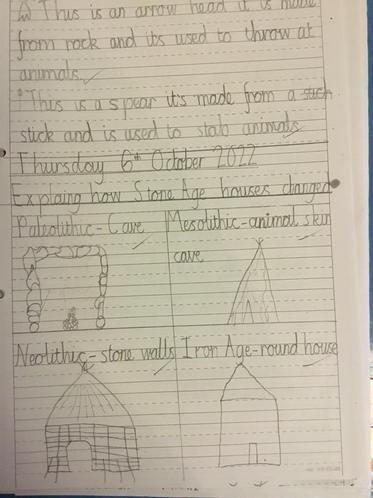 This is an arrow head it is made
from rock and its used to throw at
animals.
This is a spear it's made from a such
stick and is used to stab animals
Thursday 6th October 2022
Explaing how Stone Age houses changed
Paleolithic - Cave
Mesolithic - animal skin
cave
Neolithic - stone walls
Iron Age - round house